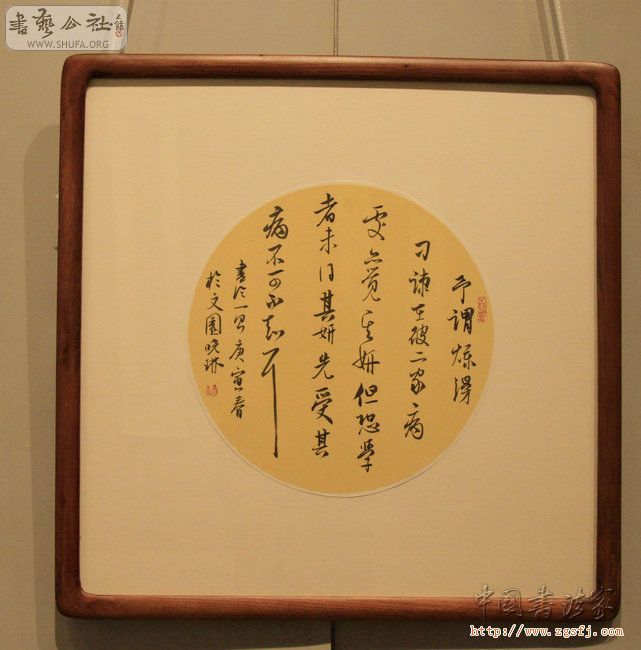 书艺公社
WWW.SHUFA.ORG
予谓烁
在彼二家病
处亦觉其妍但恐学
者未得其妍先受其
病不可不知耳
书论一则庚寅春
於文园晓琳
中国书法家
http://www.zgsfj.com